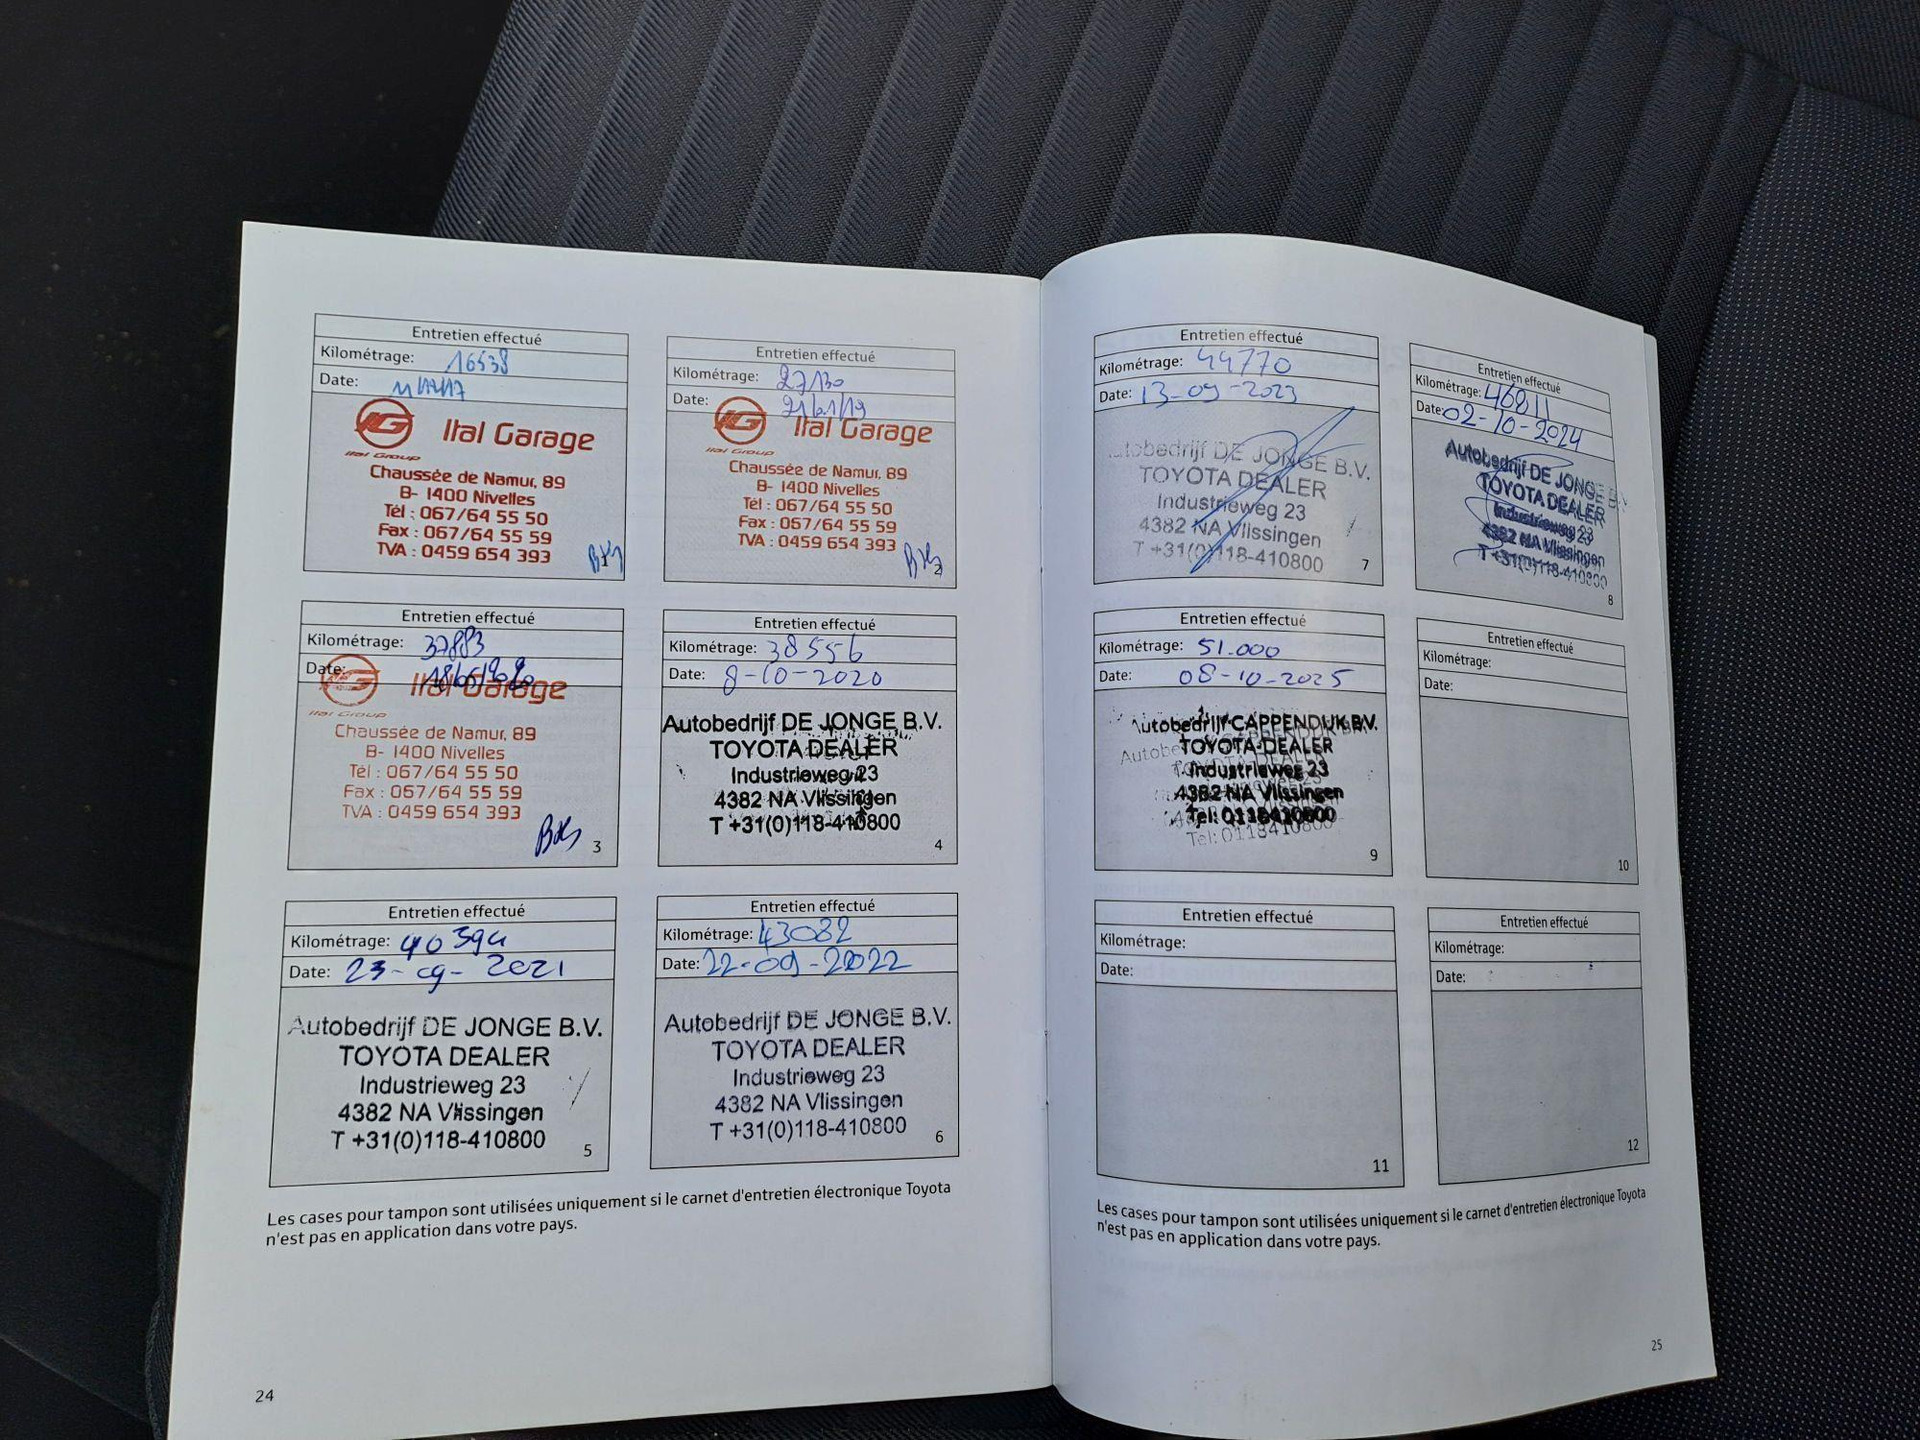 Entretien effectué
Kilométrage: 16538
Date:
IG Ital Garage
Ital Group
Chaussée de Namur, 89
B- 1400 Nivelles
Tél : 067/64 55 50
Fax : 067/64 55 59
TVA : 0459 654 393
1
Entretien effectué
Kilométrage: 27130
Date: 21/01/19
IG Ital Garage
Ital Group
Chaussée de Namur, 89
B- 1400 Nivelles
Tél : 067/64 55 50
Fax : 067/64 55 59
TVA : 0459 654 393
2
Entretien effectué
Kilométrage: 37883
Date:
Ital Garage
Ital Group
Chaussée de Namur, 89
B- 1400 Nivelles
Tél : 067/64 55 50
Fax : 067/64 55 59
TVA : 0459 654 393
3
Entretien effectué
Kilométrage: 38556
Date: 8-10-2020
Autobedrijf DE JONGE B.V.
TOYOTA DEALER
Industrieweg 23
4382 NA Vlissingen
T +31(0)118-410800
4
Entretien effectué
Kilométrage: 40394
Date: 23-09-2021
Autobedrijf DE JONGE B.V.
TOYOTA DEALER
Industrieweg 23
4382 NA Vlissingen
T +31(0)118-410800
5
Entretien effectué
Kilométrage: 43082
Date: 22-09-2022
Autobedrijf DE JONGE B.V.
TOYOTA DEALER
Industrieweg 23
4382 NA Vlissingen
T +31(0)118-410800
6
Les cases pour tampon sont utilisées uniquement si le carnet d'entretien électronique Toyota
n'est pas en application dans votre pays.
24
Entretien effectué
Kilométrage: 44770
Date: 13-09-2023
Autobedrijf DE JONGE B.V.
TOYOTA DEALER
Industrieweg 23
4382 NA Vlissingen
T +31(0)118-410800
7
Entretien effectué
Kilométrage: 46811
Date: 02-10-2024
Autobedrijf DE JONGE B.V.
TOYOTA DEALER
Industrieweg 23
4382 NA Vlissingen
T +31(0)118-410800
8
Entretien effectué
Kilométrage: 51.000
Date: 08-10-2025
Autobedrijf CAPPENDIJK B.V.
TOYOTA-DEALER
Industrieweg 23
4382 NA Vlissingen
Tel: 0118410800
9
Entretien effectué
Kilométrage:
Date:
10
Entretien effectué
Kilométrage:
Date:
11
Entretien effectué
Kilométrage:
Date:
12
Les cases pour tampon sont utilisées uniquement si le carnet d'entretien électronique Toyota
n'est pas en application dans votre pays.
25